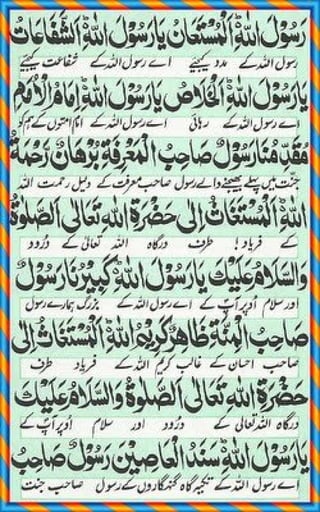 رَسُوْلَ اللهِ الْمُسْتَعَانُ يَا رَسُوْلَ اللهِ الشَّفَاعَاتُ
رسول اللہ کے مدد کیجئے اے رسول اللہ کے شفاعت کیجئے
يَا رَسُوْلَ اللهِ الْخَلَاصُ يَا رَسُوْلَ اللهِ اِمَامَ الْاُمَمِ
اے رسول اللہ کے رہائی اے رسول اللہ کے امام امتوں کے ہم کو
مُقَدَّمُنَا رَسُوْلٌ صَاحِبُ الْمَعْرِفَةِ بُرْهَانٌ رَحْمَةُ
جنت میں پہلے بھیجنے والے رسول صاحب معرفت کے دلیل رحمت اللہ
اللهِ الْمُسْتَغَاثُ اِلٰى حَضْرَةِ اللهِ تَعَالٰى الصَّلٰوةُ
کے فریاد! طرف درگاہ اللہ تعالیٰ کے درود
وَالسَّلَامُ عَلَيْكَ يَا رَسُوْلَ اللهِ كَبِيْرُنَا رَسُوْلٌ
اور سلام اوپر آپ کے اے رسول اللہ کے بزرگ ہمارے رسول
صَاحِبُ الْمِنَّةِ ظَاهِرٌ كَرِيْمُ اللهِ الْمُسْتَغَاثُ اِلٰى
صاحب احسان کے غالب کریم اللہ کے فریاد طرف
حَضْرَةِ اللهِ تَعَالٰى الصَّلٰوةُ وَالسَّلَامُ عَلَيْكَ
درگاہ اللہ تعالیٰ کے درود اور سلام اوپر آپ کے
يَا رَسُوْلَ اللهِ سَنَدُ الْعَاصِيْنَ رَسُوْلٌ صَاحِبُ
اے رسول اللہ کے تکیہ گاہ گنہگاروں کے رسول صاحب جنت